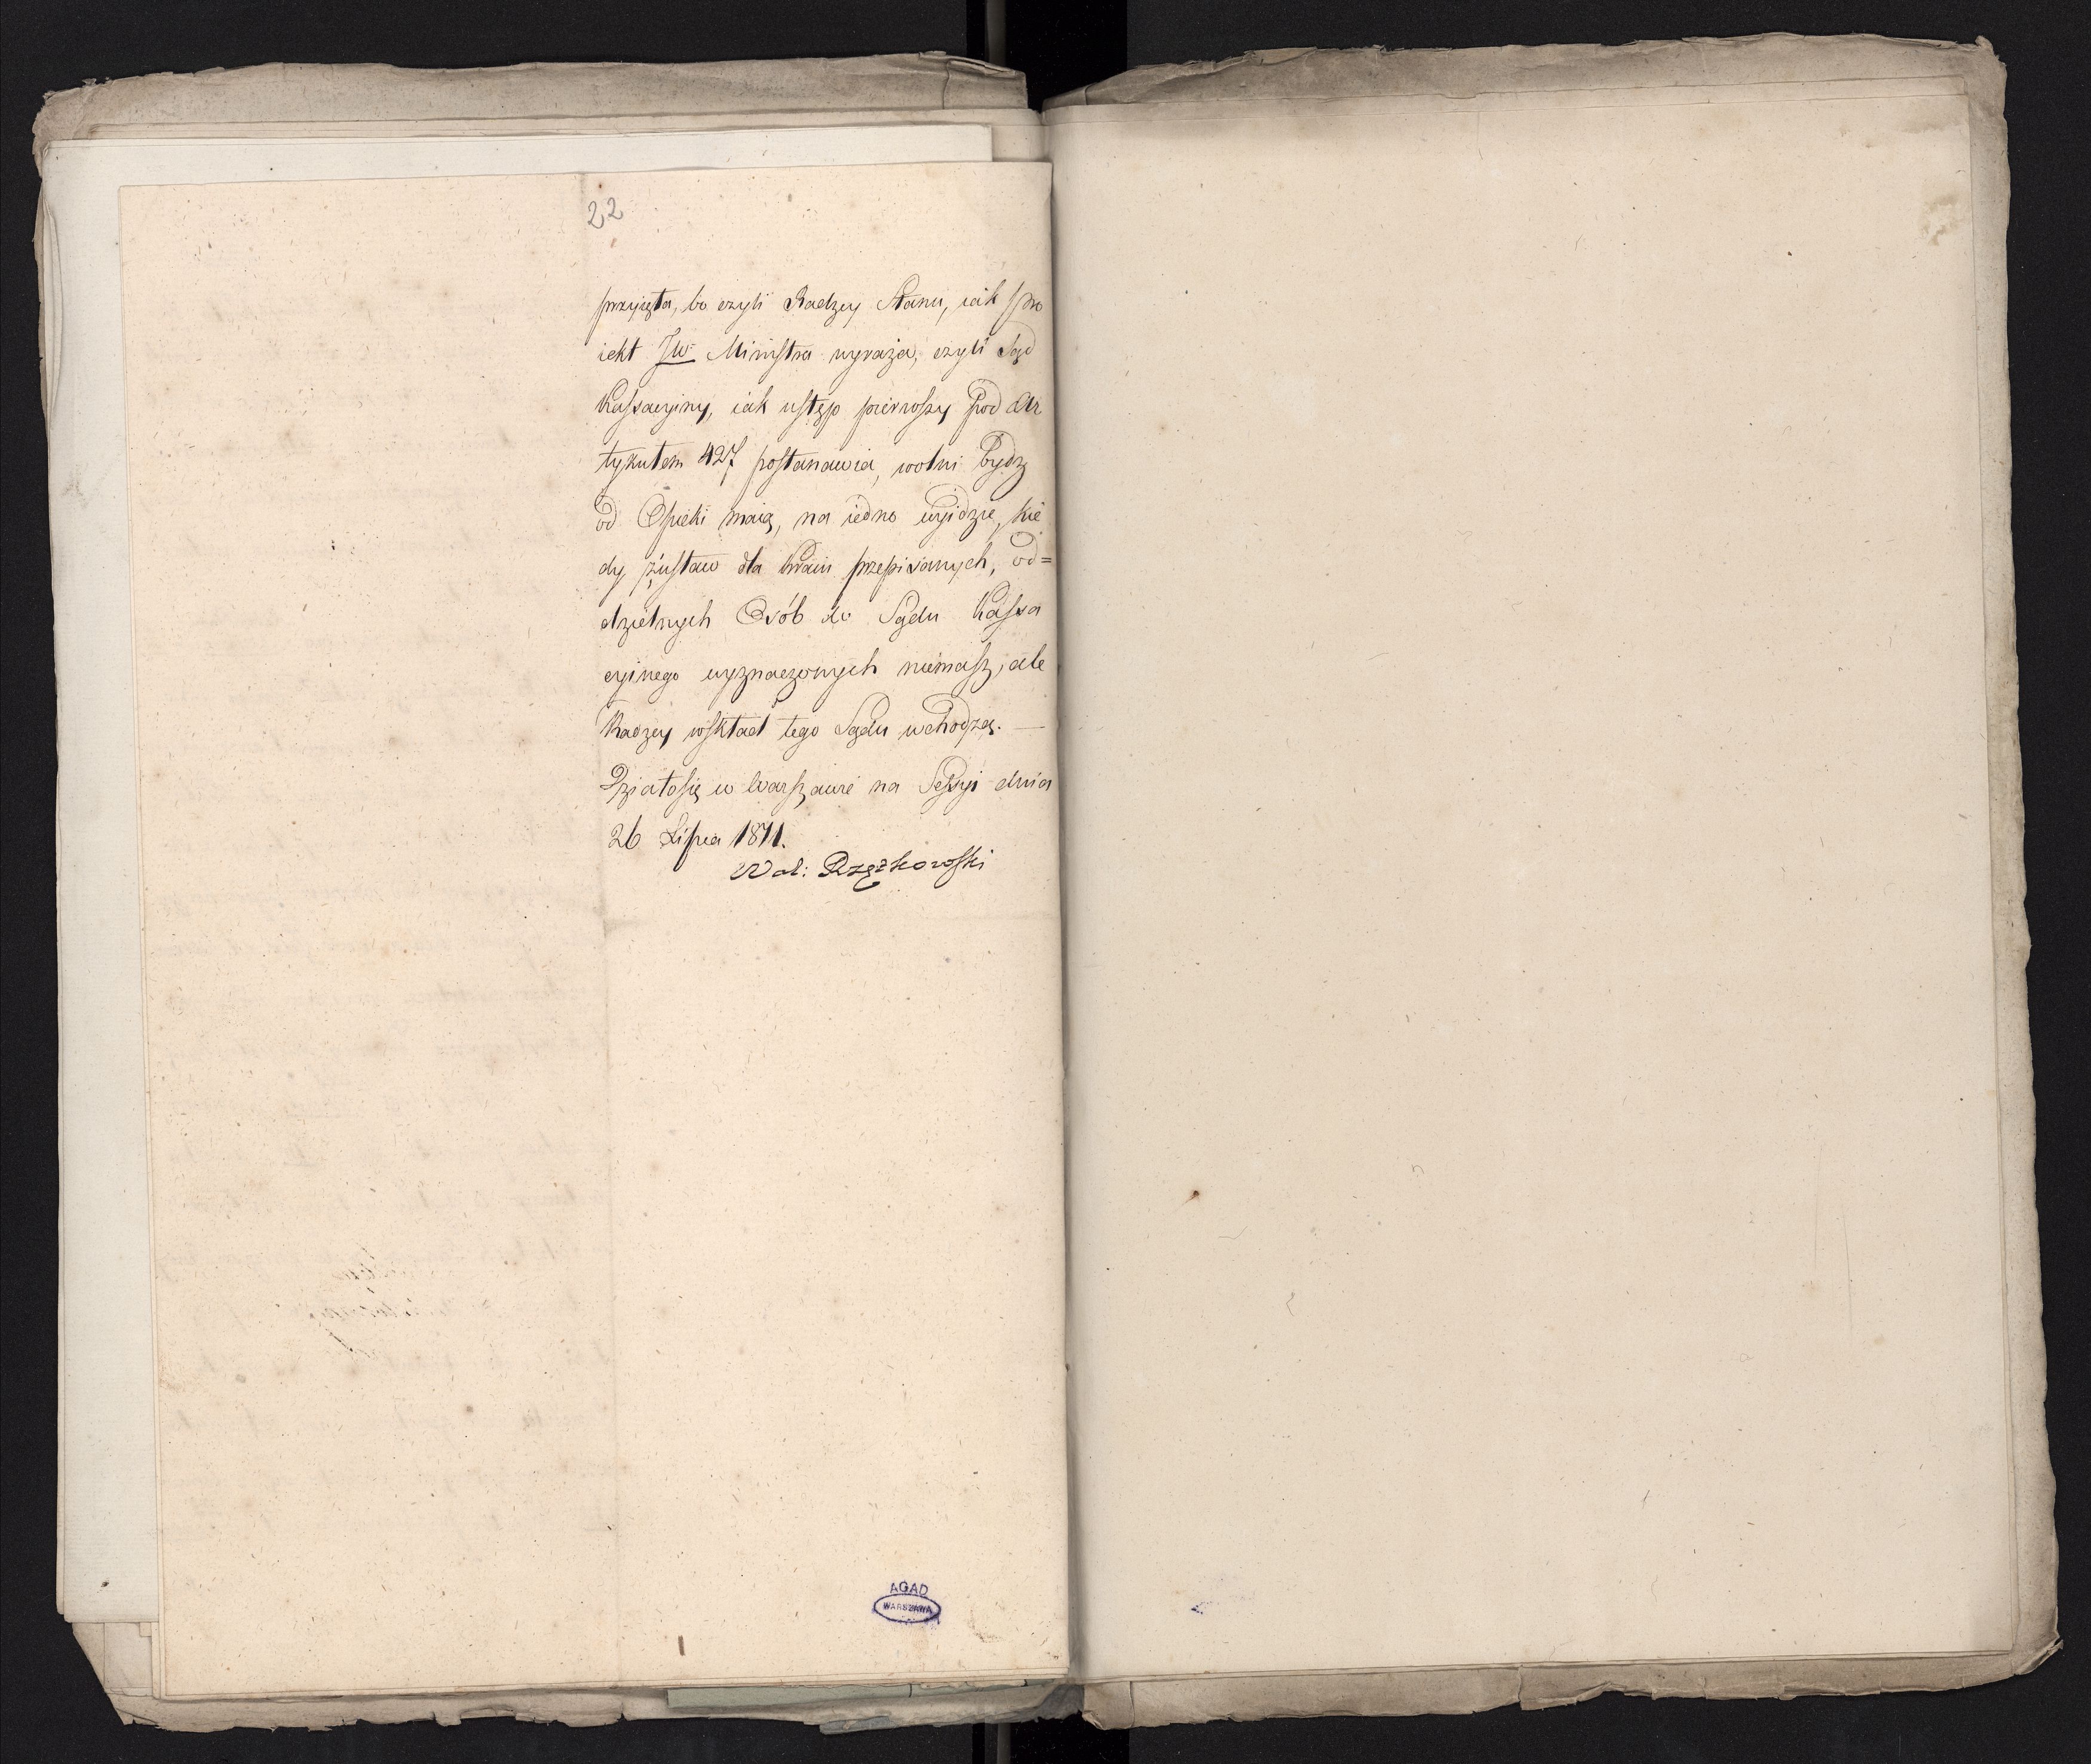 22
przyięta, bo czyli Radzcy Stanu, iak pro
iekt JW Ministra wyraża, czyli Sąd
Kassacyiny, iak ustęp pierwszy pod Ar
tykułem 427 postanawia, wolni bydź
od Opieki maią, na iedno wyidzie, kie
dy z ustaw dla kraiu przepisanych, od=
dzielnych Osób do Sądu Kassa
cyinego wyznaczonych niemasz, ale
Radzcy wskład tego Sądu wchodzą. —
Działosię w Warszawie na Sessyi dnia
26 Lipca 1811.
Wal: Rzętkowski
AGAD
WARSZAWA